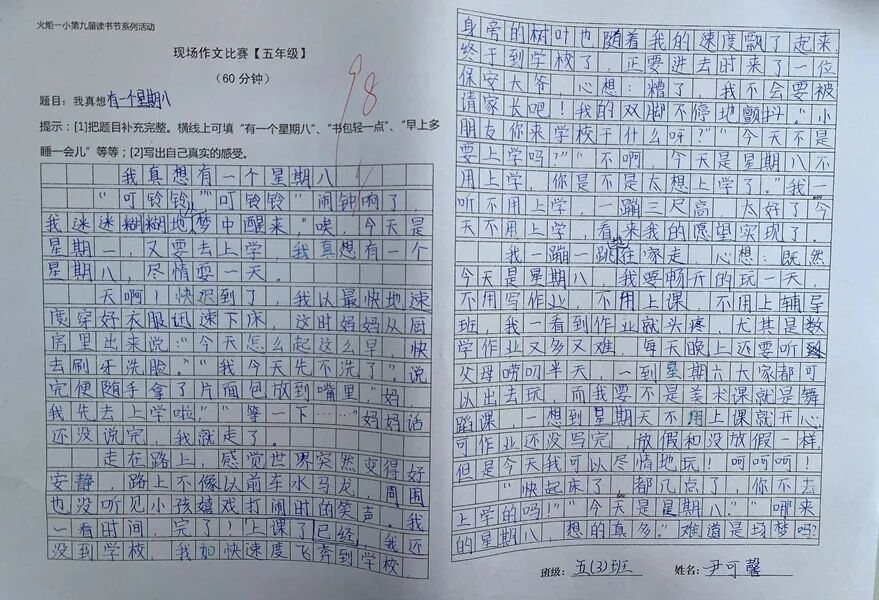 火炬一小第九届读书节系列活动
现场作文比赛【五年级】
（60分钟）
98
题目：我真想有一个星期八
提示：[1]把题目补充完整。横线上可填“有一个星期八”、“书包轻一点”、“早上多
睡一会儿”等等；[2]写出自己真实的感受。
我真想有一个星期八
“叮铃铃”“叮铃铃”闹钟响了，
我迷迷糊糊地从梦中醒来，“唉，今天是
星期一，又要去上学，我真想有一个
星期八，尽情耍一天。
天啊！快迟到了，我以最快地速
度穿好衣服迅速下床，这时妈妈从厨
房里出来说：“今天怎么起这么早，快
去刷牙洗脸。”“我今天先不洗了。”说
完便随手拿了片面包放到嘴里，“妈
我先去上学啦。”“等一下……”妈妈话
还没说完，我就走了。
走在路上，感觉世界突然变得好
安静，路上不像以前车水马龙，周围
也没听见小孩嬉戏打闹时的笑声。我
一看时间，完了！上课了已经，我还
没到学校，我加快速度飞奔到学校，
身旁的树叶也随着我的速度飘了起来，
终于到学校了，正要进去时来了一位
保安大爷，心想：糟了，我不会要被
请家长吧！我的双脚不停地颤抖。“小
朋友你来学校干什么呀？”“今天不是
要上学吗？”“不啊，今天是星期八不
用上学，你是不是太想上学了。”我一
听不用上学，一蹦三尺高，太好了今
天不用上学，看来我的愿望实现了。
我一蹦一跳地往家走，心想：既然
今天是星期八，我要畅开的玩一天，
不用写作业，不用上课，不用上辅导
班，我一看到作业就头疼，尤其是数
学作业又多又难，每天晚上还要听
父母唠叨半天，一到星期六大家都可
以出去玩，而我要不是美术课就是舞
蹈课，一想到星期天不用上课就开心
可作业还没写完，放假和没放假一样，
但是今天我可以尽情地玩！呵呵呵！
“快起床了，都几点了，你不去
上学的吗！”“今天是星期八！”“哪来
的星期八，想的真多。”难道是场梦吗？
班级：五(3)班 姓名：尹可馨